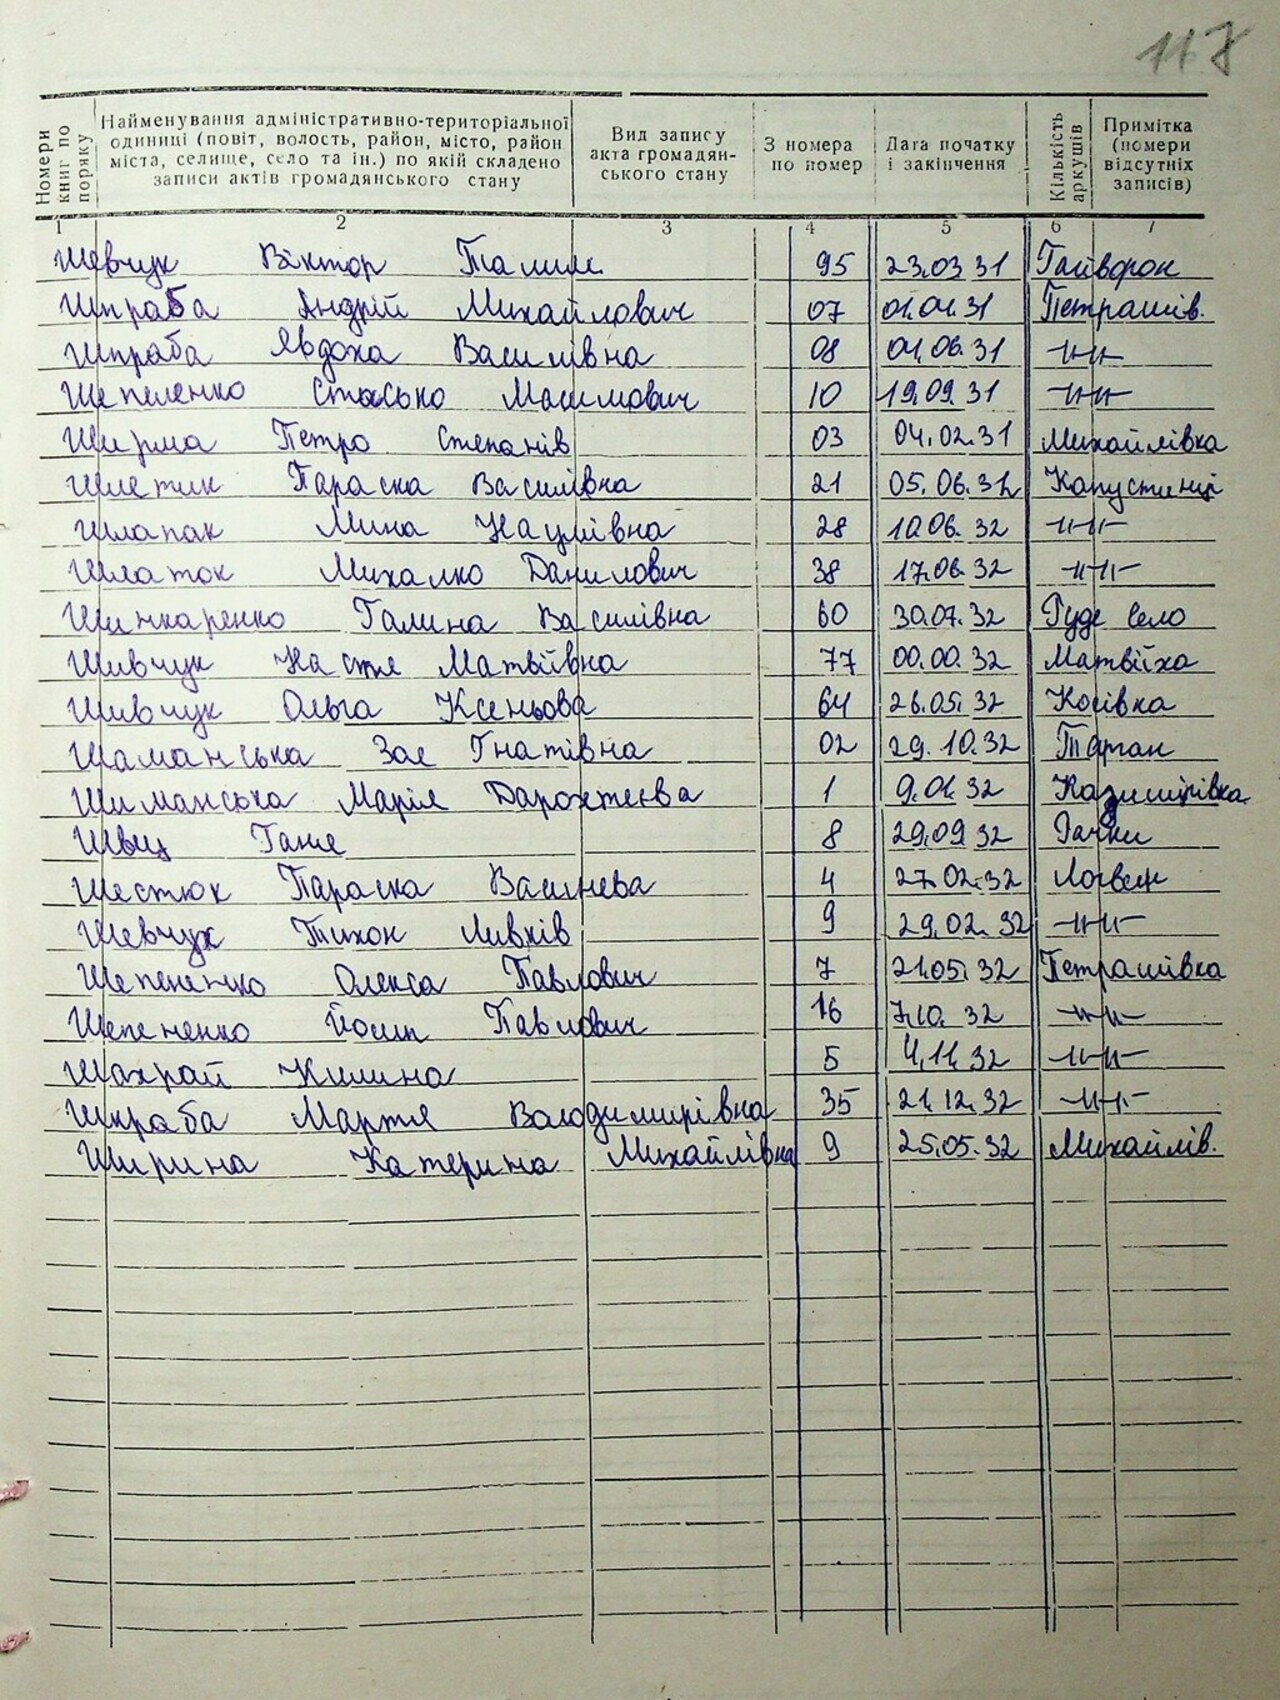 117
Номери книг по порядку
Найменування адміністративно-територіальної одиниці (повіт, волость, район, місто, район міста, селище, село та ін.) по якій складено записи актів громадянського стану
Вид запису акта громадян-ського стану
З номера по номер
Дата початку і закінчення
Кількість аркушів
Примітка (номери відсутніх записів)
1 2 3 4 5 6 7
Шевчук Віктор 95 23.03 31 Гайворон
Шкраба Андрій Михайлович 07 01.04.31 Петрашів.
Шкраба Явдоха Василівна 08 01.06.31 -//-//-
Шепеленко Стасько Максимович 10 19.09.31 -//-//-
Ширма Петро Степанів 03 04.02.31 Михайлівка
Шлетик Параска Василівна 21 05.06.32 Капустинці
Шлапак Мина Наумівна 28 10.06.32 -//-//-
Шлаток Михалко Данилович 38 17.06.32 -//-//-
Шинкаренко Галина Василівна 60 30.07.32 Руде Село
Шивчук Настя Матвіївна 77 00.00.32 Матвіїха
Шивчук Ольга Ксеньова 64 26.05.32 Косівка
Шаманська Зое Гнатівна 02 29.10.32 Тарган
Шиманська Марія 1 9.01.32 Казимирівка
Швец Ганя 8 29.09.32
Шестюк Параска 4 27.02.32 Логвин
Шевчук Тихон 9 29.02.32 -//-//-
Шепененко Олекса Павлович 7 21.05.32 Петрашівка
Шепененко Йосип Павлович 16 7.10.32 -//-//-
Шахрай Килина 5 4.11.32 -//-//-
Шкраба Мартя Володимирівна 35 21.12.32 -//-//-
Ширина Катерина Михайлівна 9 25.05.32 Михайлів.